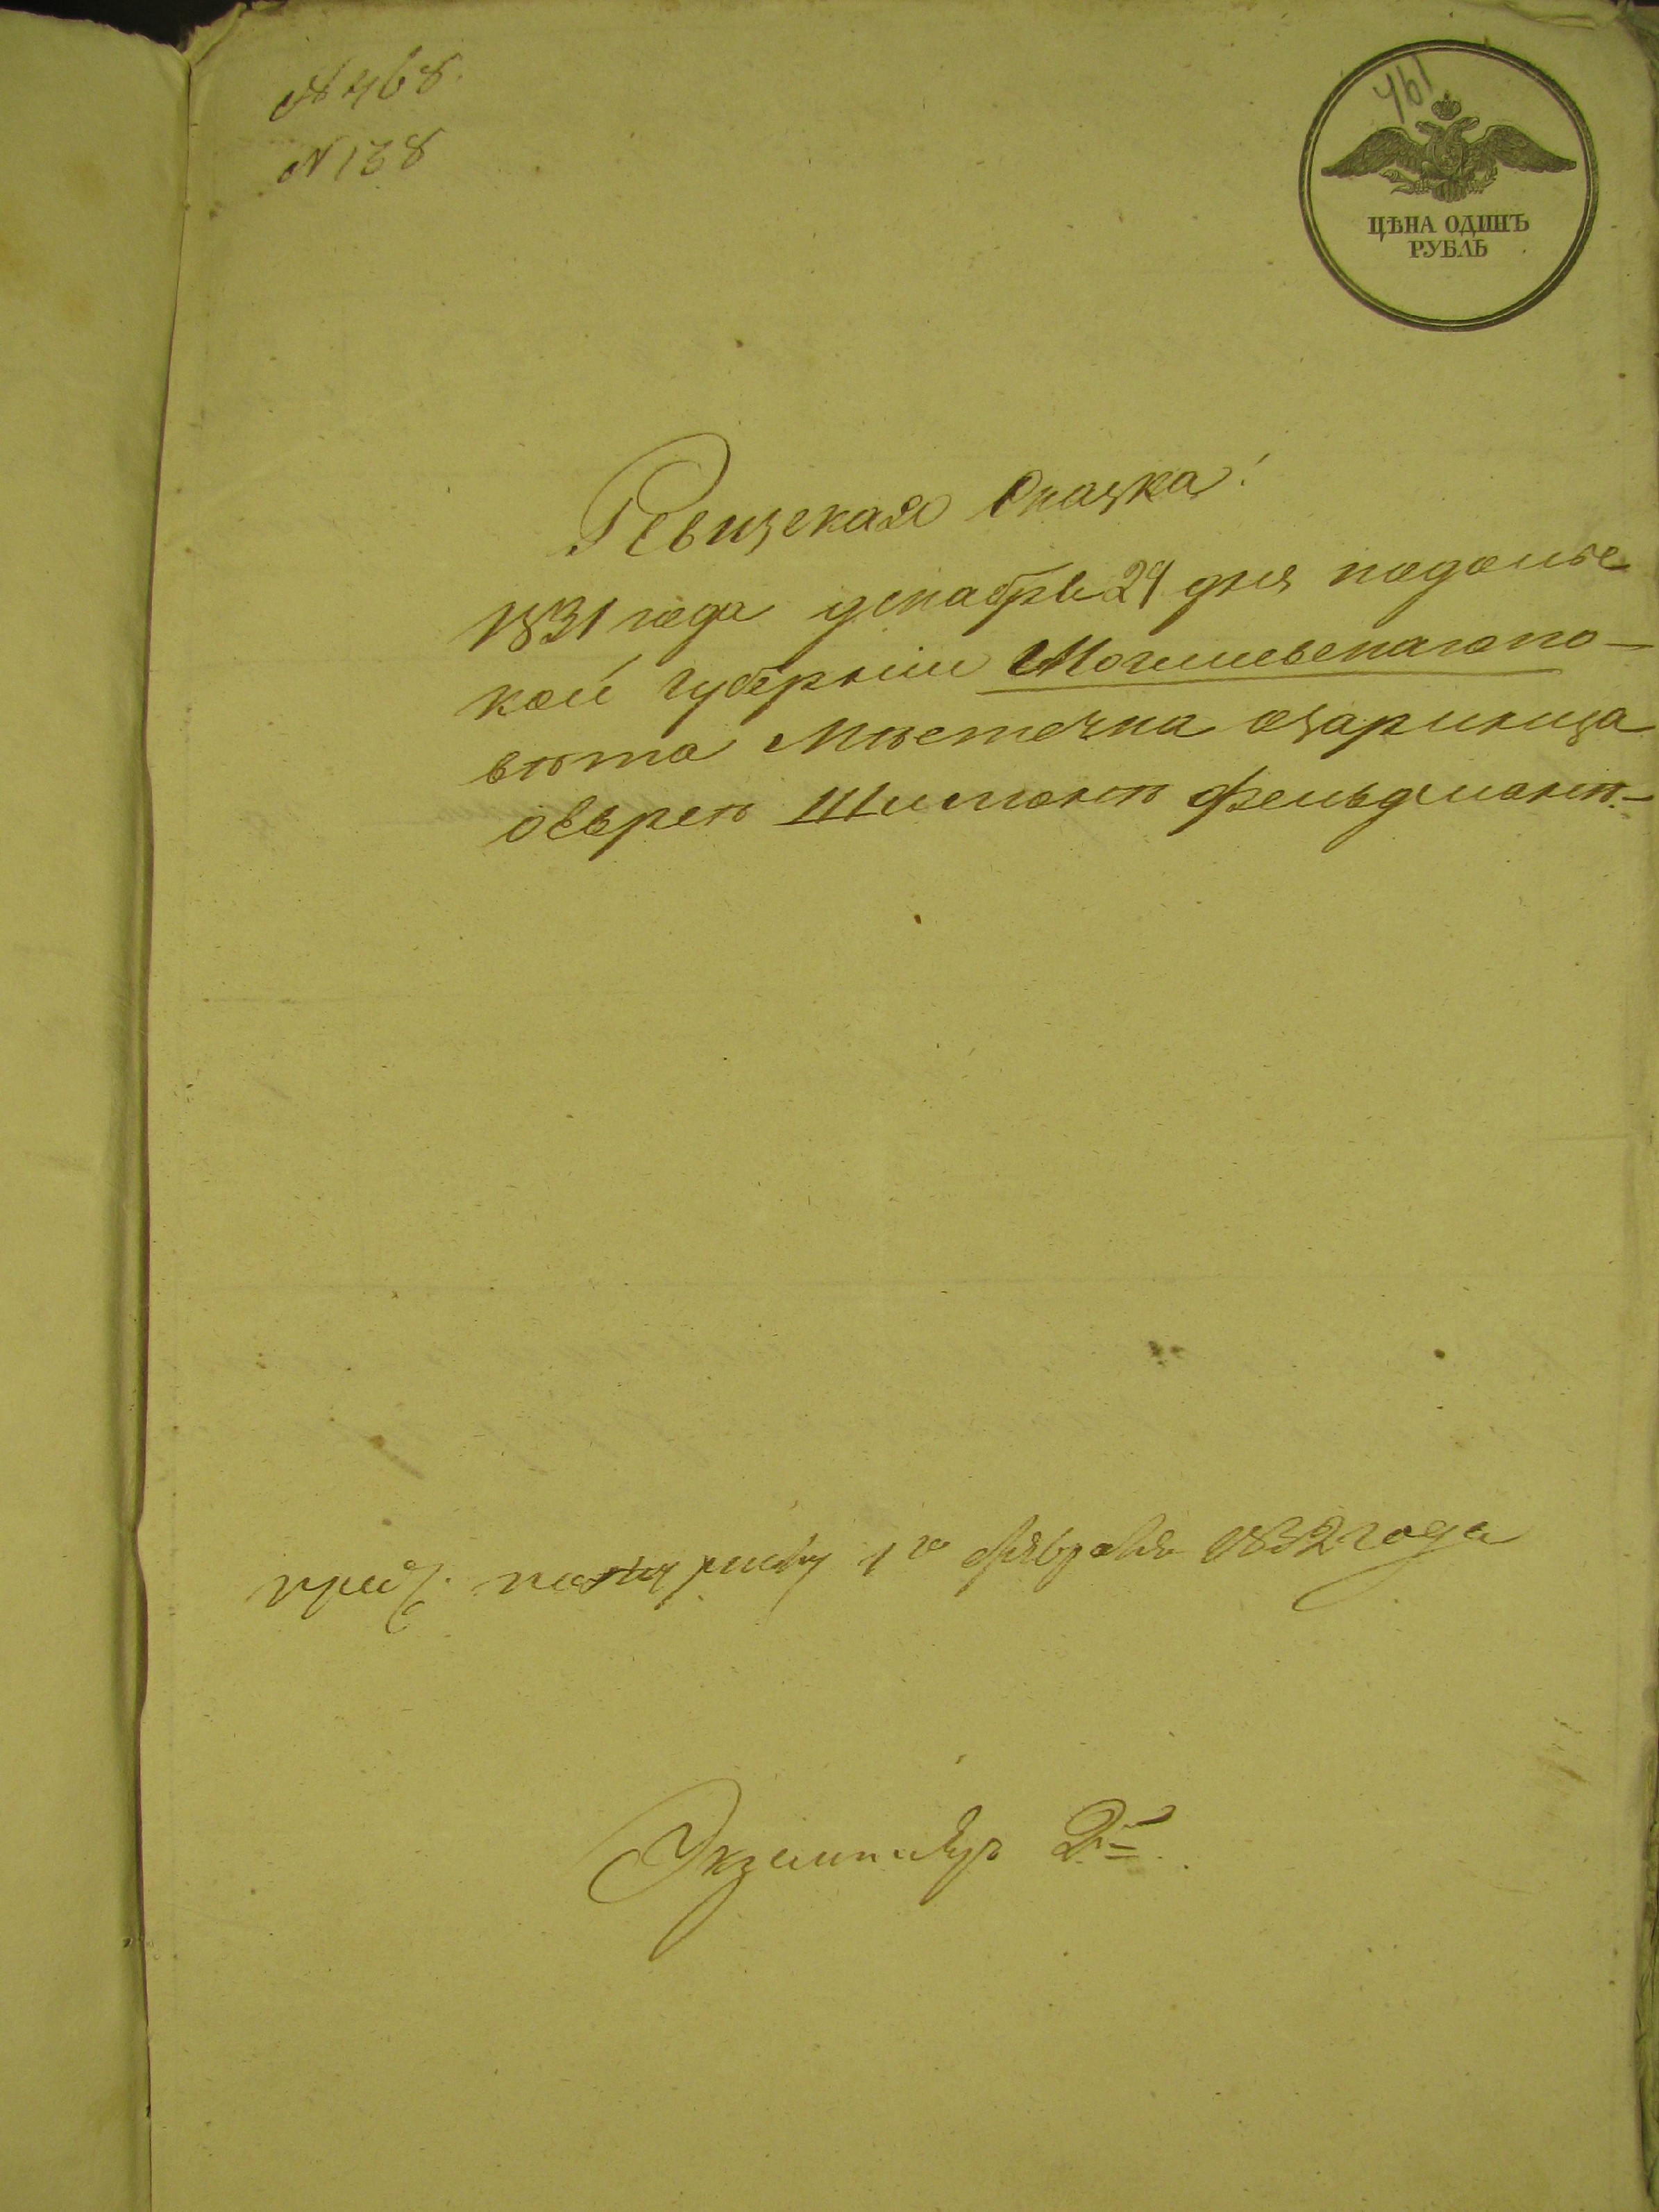 № 468.
№ 138
461
ЦѢНА ОДИНЪ
РУБЛЬ
Ревизская Сказка!
1831 года декабря 29 дня подольс
кой губерніи Могилевскаго по-
вѣта Мѣстечка Озаринца
оеврея Шимона Фельдмана.-
1го февраля 1832 года
Экземпляръ 2й